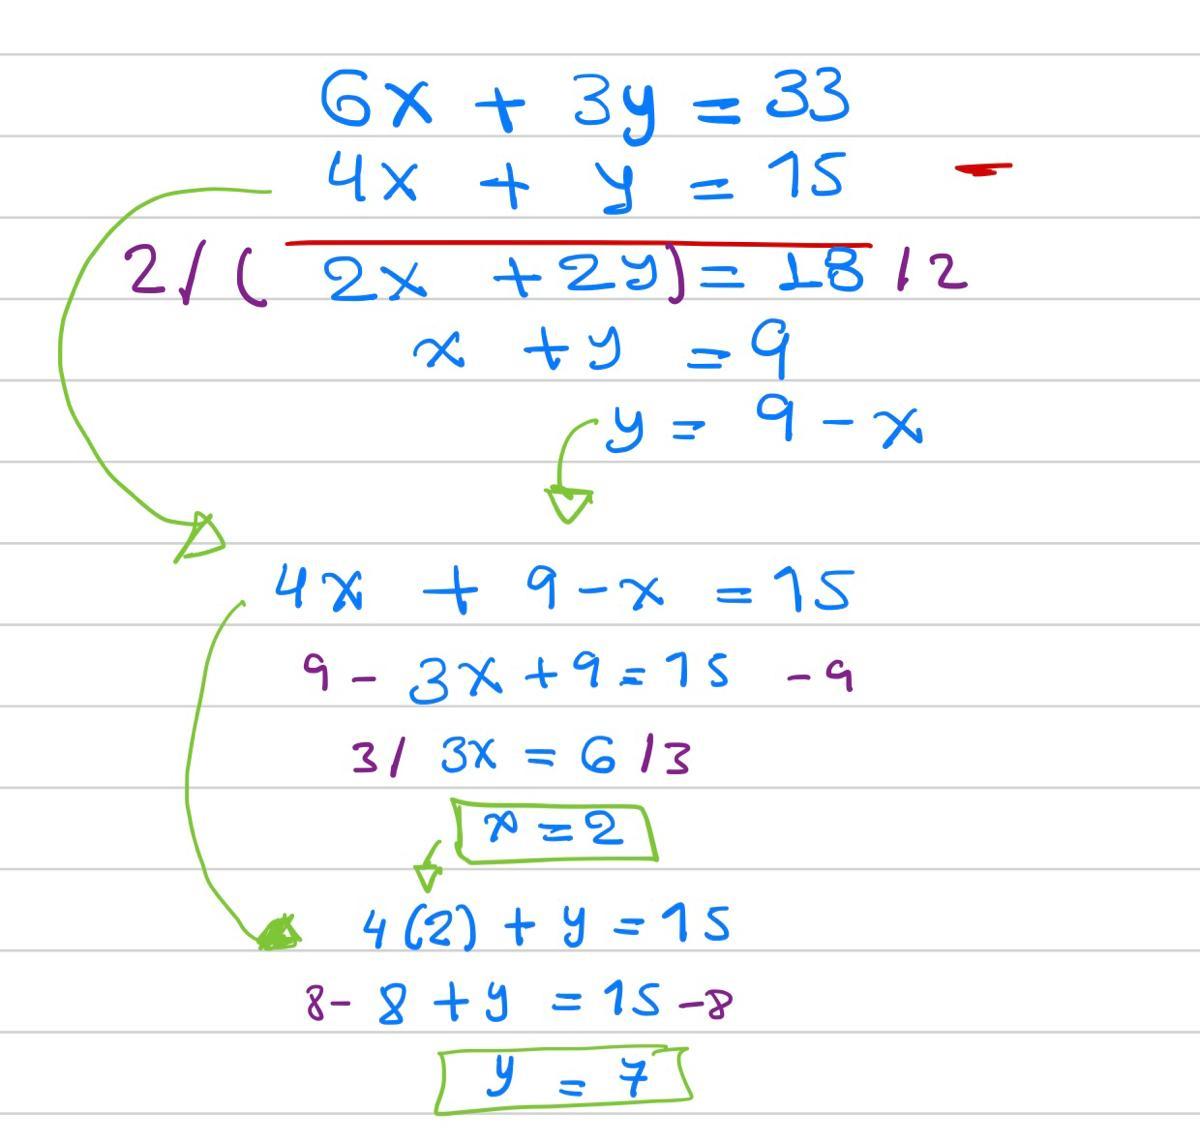 6x + 3y = 33
4x + y = 15 -
2/( 2x + 2y) = 18 /2
x + y = 9
y = 9 - x
4x + 9 - x = 15
9 - 3x + 9 = 15 - 9
3/ 3x = 6 /3
x = 2
4(2) + y = 15
8- 8 + y = 15 -8
y = 7